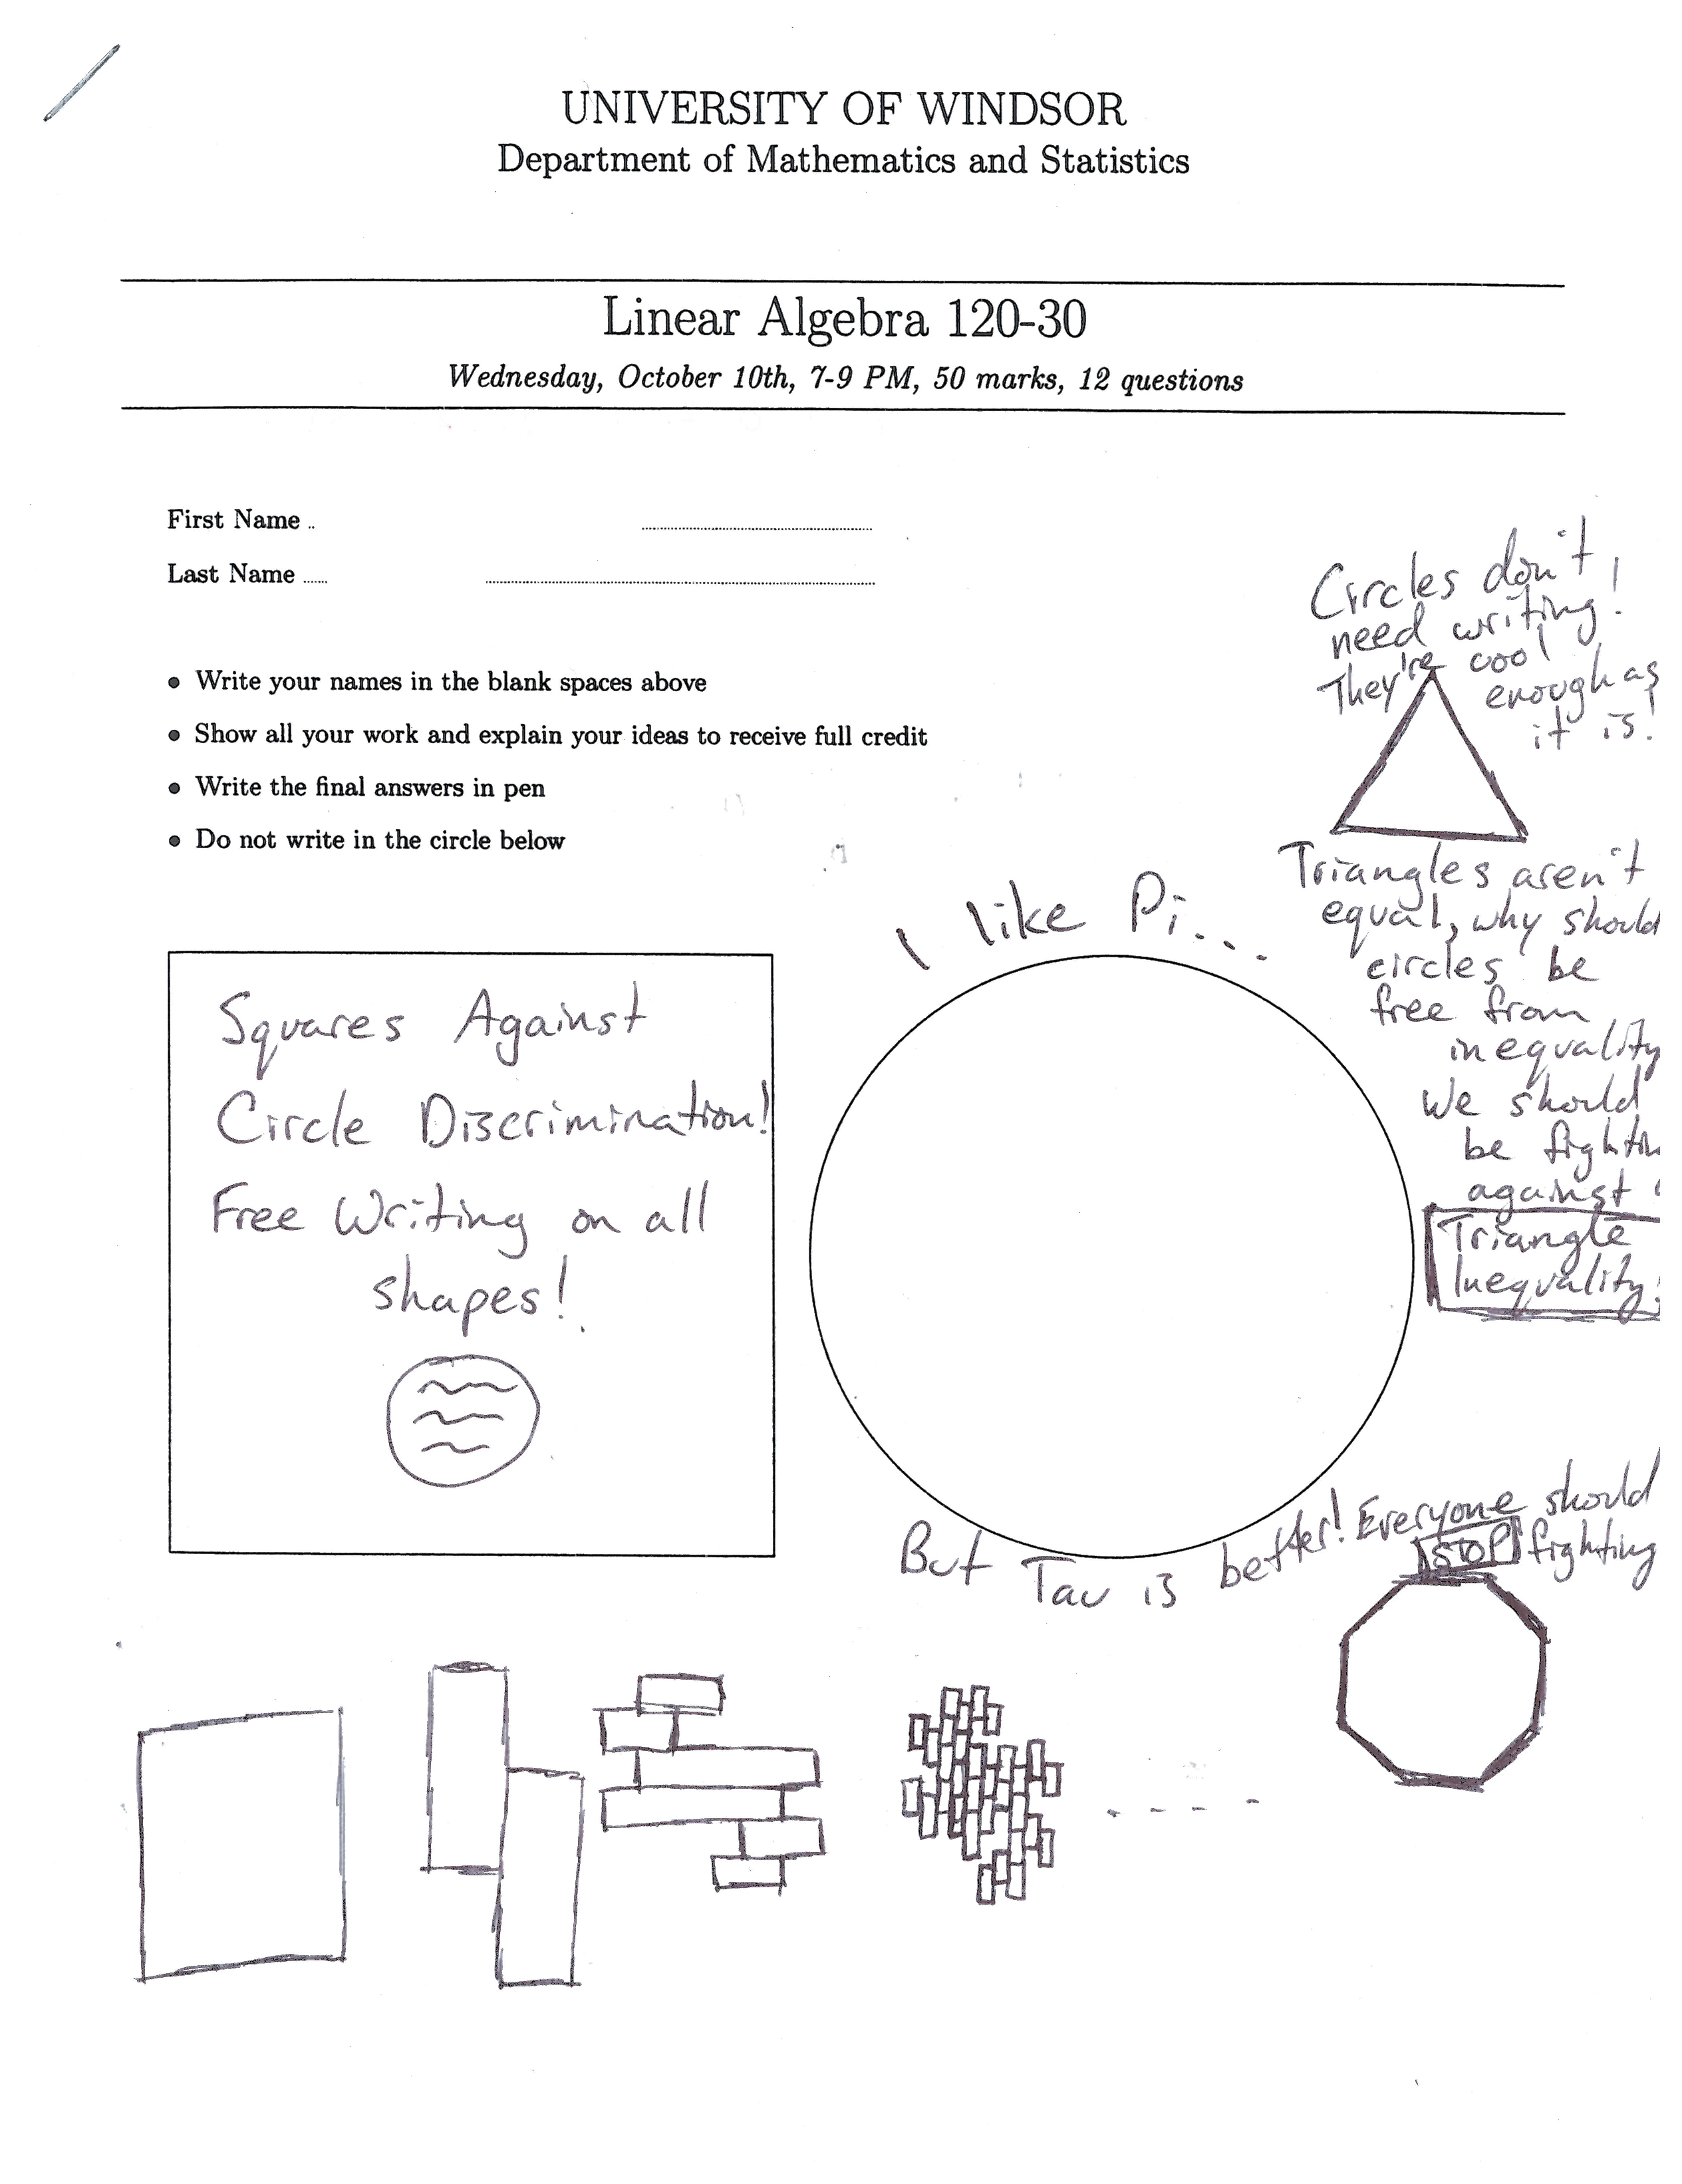 UNIVERSITY OF WINDSOR
Department of Mathematics and Statistics
Linear Algebra 120-30
Wednesday, October 10th, 7-9 PM, 50 marks, 12 questions
First Name
Last Name
• Write your names in the blank spaces above
• Show all your work and explain your ideas to receive full credit
• Write the final answers in pen
• Do not write in the circle below
Circles don't
need writing!
They're cool
enough as
it is!
Triangles aren't
equal, why should
circles be
free from
inequality
We should
be fightin
against
Triangle
Inequality!
I like Pi...
Squares Against
Circle Discrimination!
Free Writing on all
shapes!
But Tau is better!
Everyone should
STOP fighting